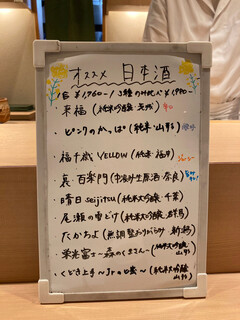 オススメ 日本酒
各¥1,760-/3種のみ比べ¥1,990-
・来福(純米吟醸・茨城)
・ピンクのかっぱ(純米・山形)
・福千歳 YELLOW(純米・福井) ジューシー
・裏・百楽門(中汲み生原酒・奈良)
・晴日 seijitsu(純米大吟醸・千葉)
・尾瀬の雪どけ(純米大吟醸・群馬)
・たかちよ(無調整おりがらみ・新潟)
・栄光冨士〜森のくまさん〜(純米大吟醸・山形)
・くどき上手〜Jrの〜(純米大吟醸・山形)